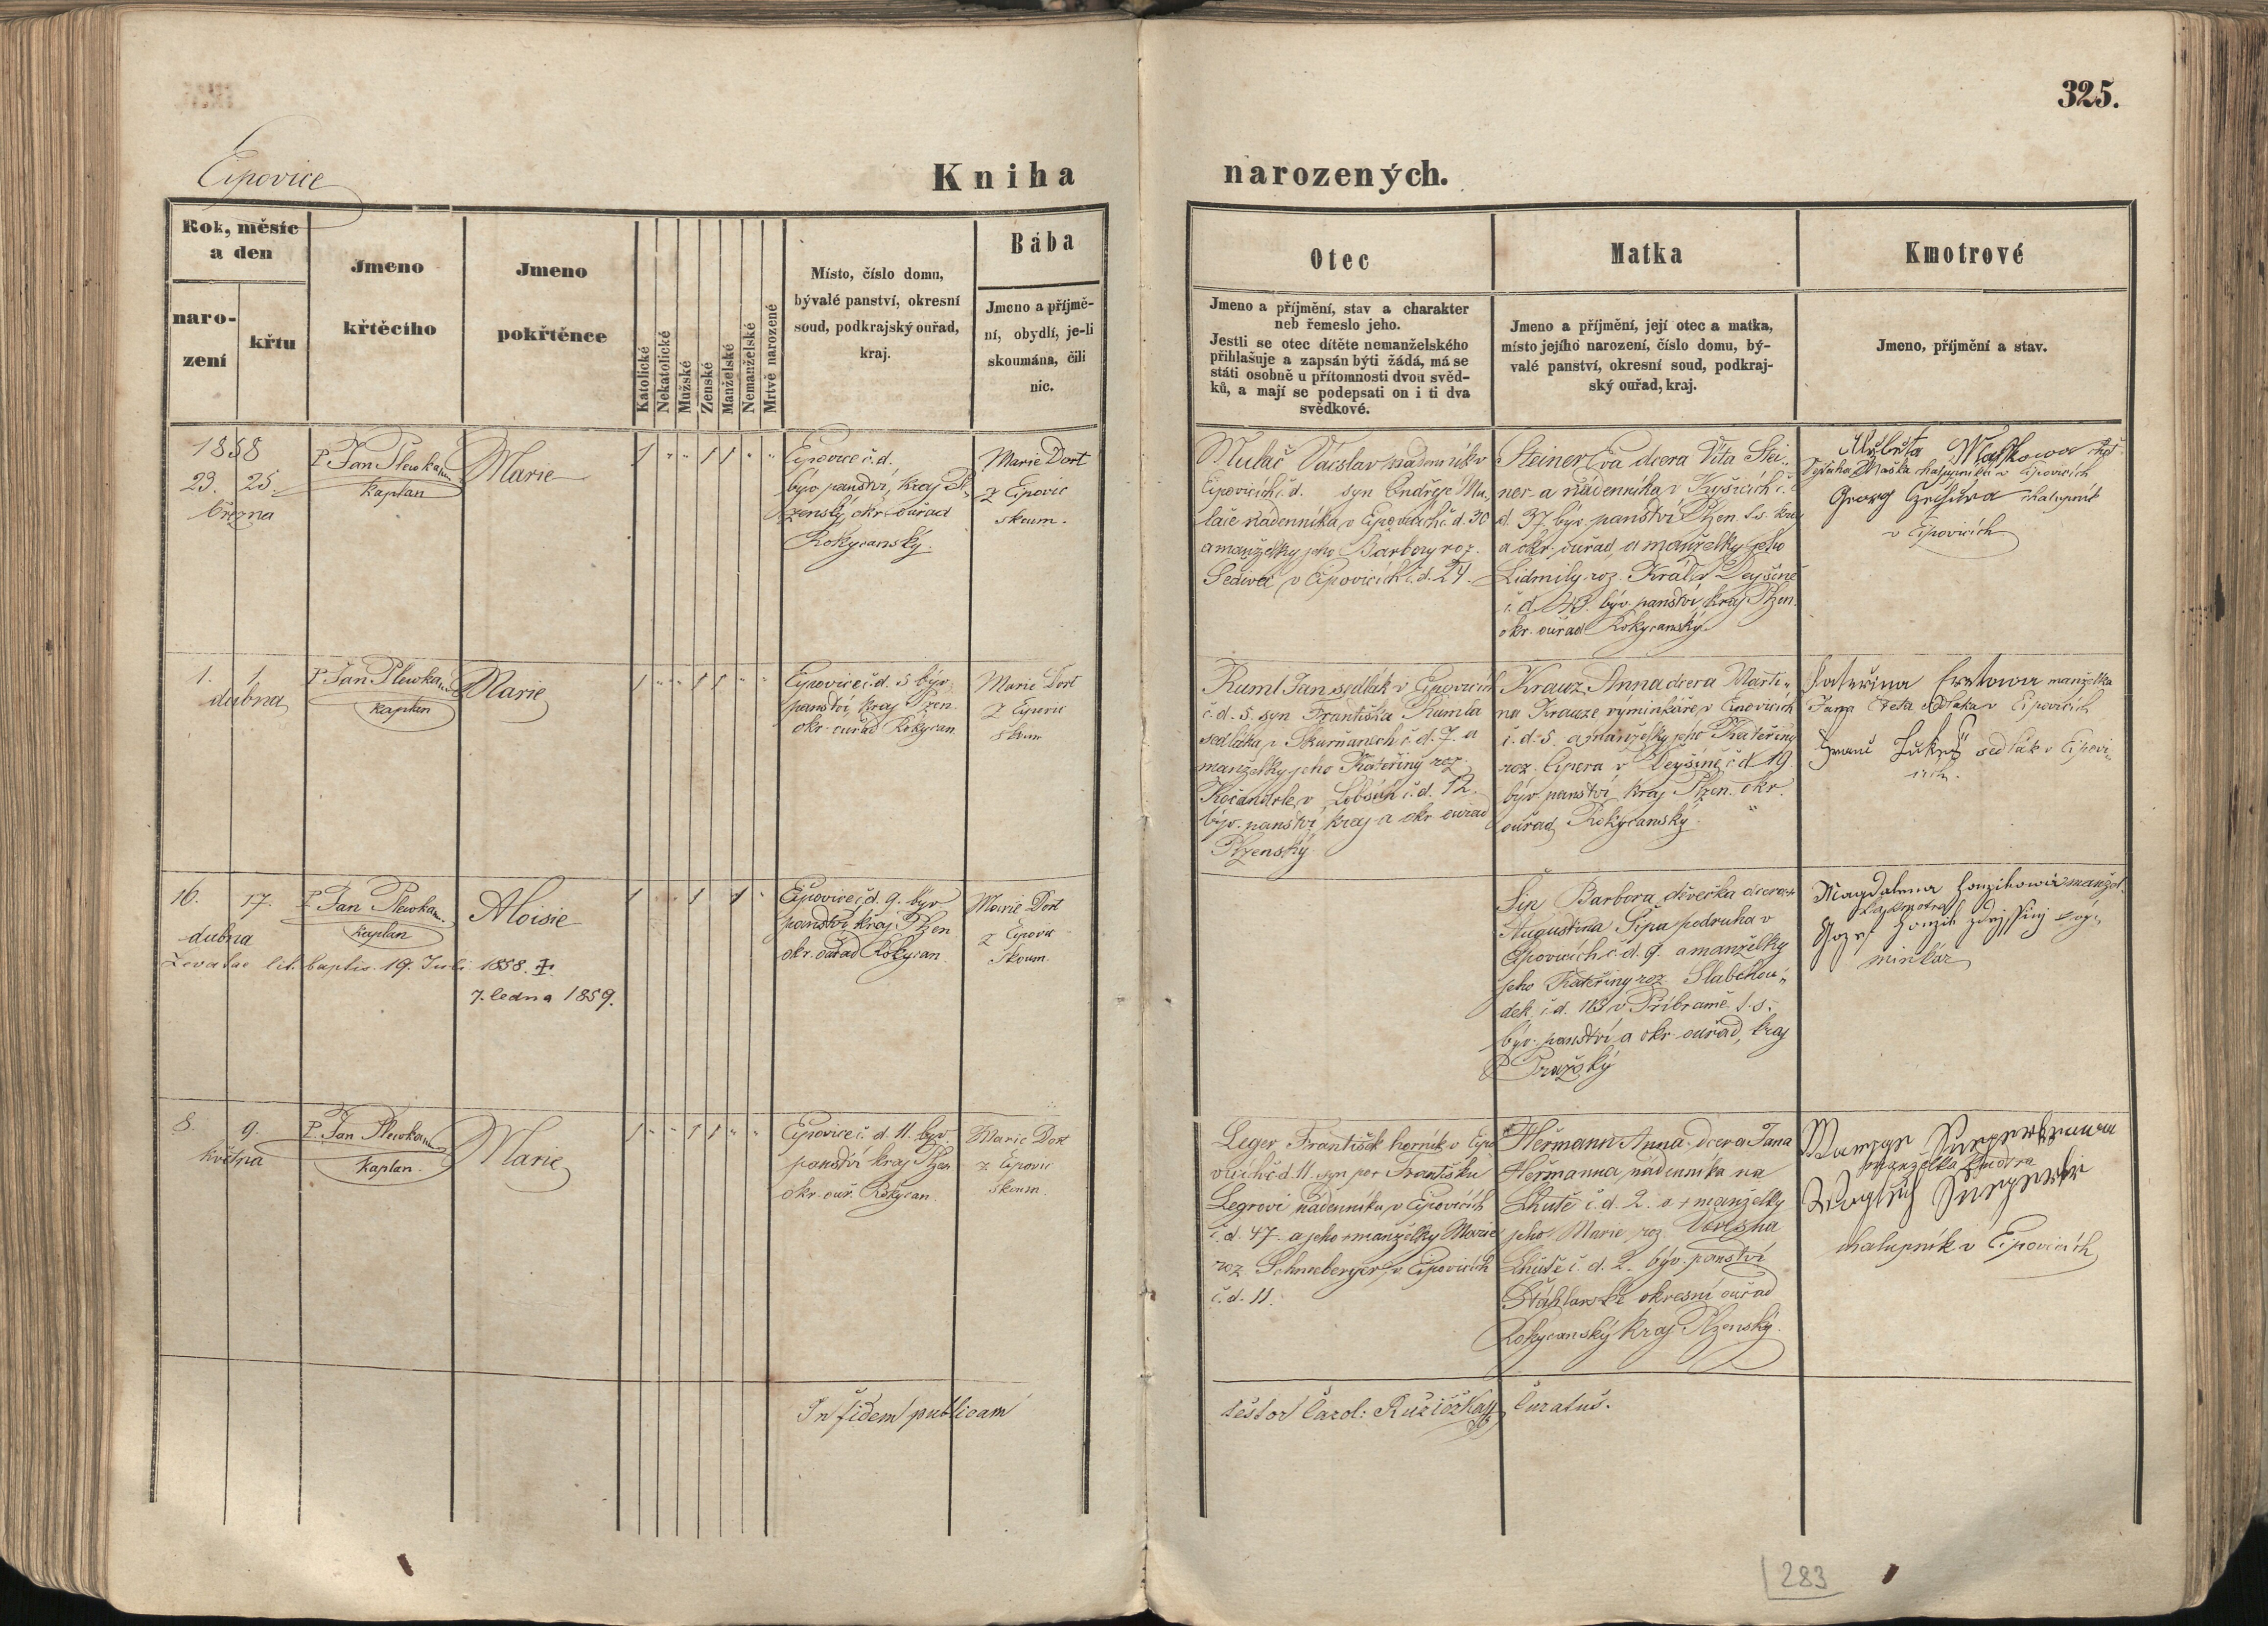 325.
Ejpovice
Kniha narozených.
Rok, měsíc
a den
naro-
zení
křtu
Jmeno
křtěcího
Jmeno
pokřtěnce
Katolické
Nekatolické
Mužské
Ženské
Manželské
Nemanželské
Mrtvě narozené
Místo, číslo domu,
bývalé panství, okresní
soud, podkrajský ouřad,
kraj.
Bába
Jmeno a příjmě-
ní, obydlí, je-li
skoumána, čili
nic.
Otec
Jmeno a příjmění, stav a charakter
neb řemeslo jeho.
Jestli se otec dítěte nemanželského
přihlašuje a zapsán býti žádá, má se
státi osobně u přítomnosti dvou svěd-
ků, a mají se podepsati on i ti dva
svědkové.
Matka
Jmeno a příjmění, její otec a matka,
místo jejího narození, číslo domu, bý-
valé panství, okresní soud, podkraj-
ský ouřad, kraj.
Kmotrové
Jmeno, příjmění a stav.
1858
23. 25.
března
P. Jan Plewka
Kaplan
Marie
Ejpovice č. d.
býv. panství, kraj Pl-
zenský, okr. ouřad
Rokycanský.
Marie Dort
z Ejpovic
skoum.
Mulač Václav nádenník v
Ejpovicích č. d. syn Ondřeje Mu-
lače nádenníka v Ejpovicích č. d. 30
a manželky jeho Barbory roz.
Šedivec v Ejpovicích č. d. 24.
Steiner Eva dcera Víta Stei-
ner a nádenníka v Kyšicích č.
d. 37. býv. panství Plzen. kraj
a okr. ouřad a manželky jeho
Lidmily roz. Král z Dejšině
č. d. 43. býv. panství, kraj Plzen.
okr. ouřad Rokycanský.
Alžběta Maškowa
Maška chalupníka v Ejpovicích
Georg chalupník
v Ejpovicích
1. 1.
dubna
P. Jan Plewka
Kaplan
Marie
Ejpovice č. d. 5 býv.
panství, kraj Plzen.
okr. ouřad Rokycan.
Marie Dort
z Ejpovic
skoum
Ruml Jan sedlák v Ejpovicích
č. d. 5. syn Františka Rumla
sedláka v Skurňanech č. d. 7. a
manželky jeho Kateřiny roz.
Kočandrle v Lobzích č. d. 12.
býv. panství kraj a okr. ouřad
Plzenský
Krauz Anna dcera Marti-
na Krauze výminkáře v Ejpovicích
č. d. 5. a manželky jeho Kateřiny
roz. Cipera v Dejšině č. d. 19.
býv. panství, kraj Plzen. okr.
ouřad Rokycanský.
Kateřina manželka
Jana sedláka v Ejpovicích
sedlák v Ejpovi-
cích.
16. 17.
dubna
P. Jan Plewka
Kaplan
Aloisie
lit. baptis. 19. Juli 1858. ‡
7. ledna 1859.
Ejpovice č. d. 9. býv.
panství, kraj Plzen.
okr. ouřad Rokycan.
Marie Dort
z Ejpovic
Skoum.
Šip Barbora děvečka dcera
Augustina Šipa podruha v
Ejpovicích č. d. 9. a manželky
jeho Kateřiny roz. Slabihou-
dek č. d. 183 v Příbramě
býv. panství a okr. ouřad, kraj
Pražský
Magdalena manžel.
Jozef
minkář
8. 9.
května
P. Jan Plewka
Kaplan.
Marie
Ejpovice č. d. 11. býv.
panství kraj Plzen
okr. ouř. Rokycan.
Marie Dort
z Ejpovic
skoum.
Leger František horník v Ejpo-
vicích č. d. 11. syn po Františku
Legrovi nádenníku v Ejpovicích
č. d. 47. a jeho manželky Marie
roz. Schneeberger v Ejpovicích
č. d. 11.
Heřmann Anna dcera Jana
Heřmanna nádenníka na
Lhutě č. d. 2. a + manželky
jeho Marie roz. z
Lhutě č. d. 2. býv. panství
Šťáhlavské okresní ouřad
Rokycanský kraj Plzenský.
manželka kmotra
chalupník v Ejpovicích
In fidem publicam
testor Carol: Ružiczka Curatus.
283